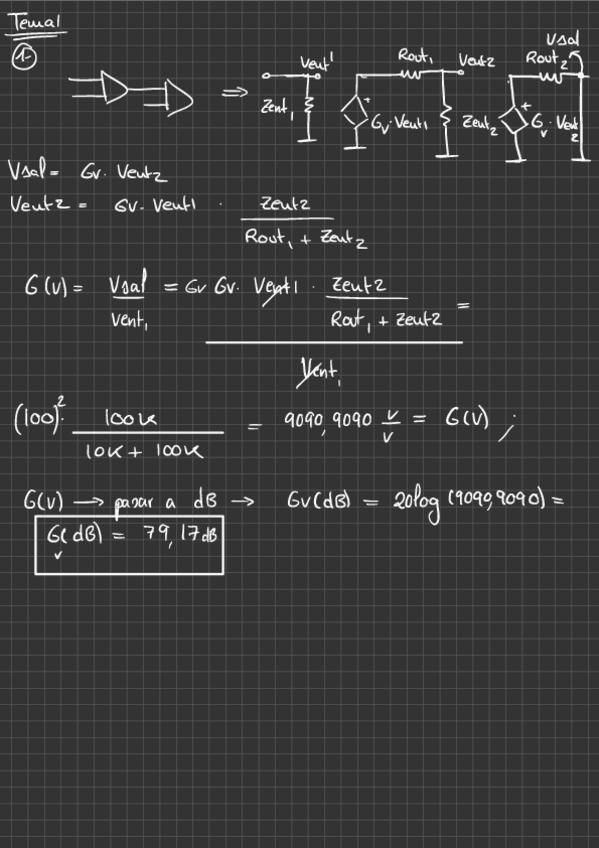 Tema1
1-
Vsal
Vent1 Rout1 Vent2 Rout2
⇒ Zent1 + Gv·Vent1 Zent2 + Gv·Vent2
Vsal = Gv· Vent2
Vent2 = Gv· Vent1 · Zent2 / (Rout1 + Zent2)
G(v) = Vsal / Vent1 = (Gv Gv· Vent1 · Zent2 / (Rout1 + Zent2)) / Vent1 =
(100)²· 100K / (10K + 100K) = 9090,9090 V/V = G(v) ;
G(v) → pasar a dB → Gv(dB) = 20log(9090,9090) =
Gv(dB) = 79,17dB